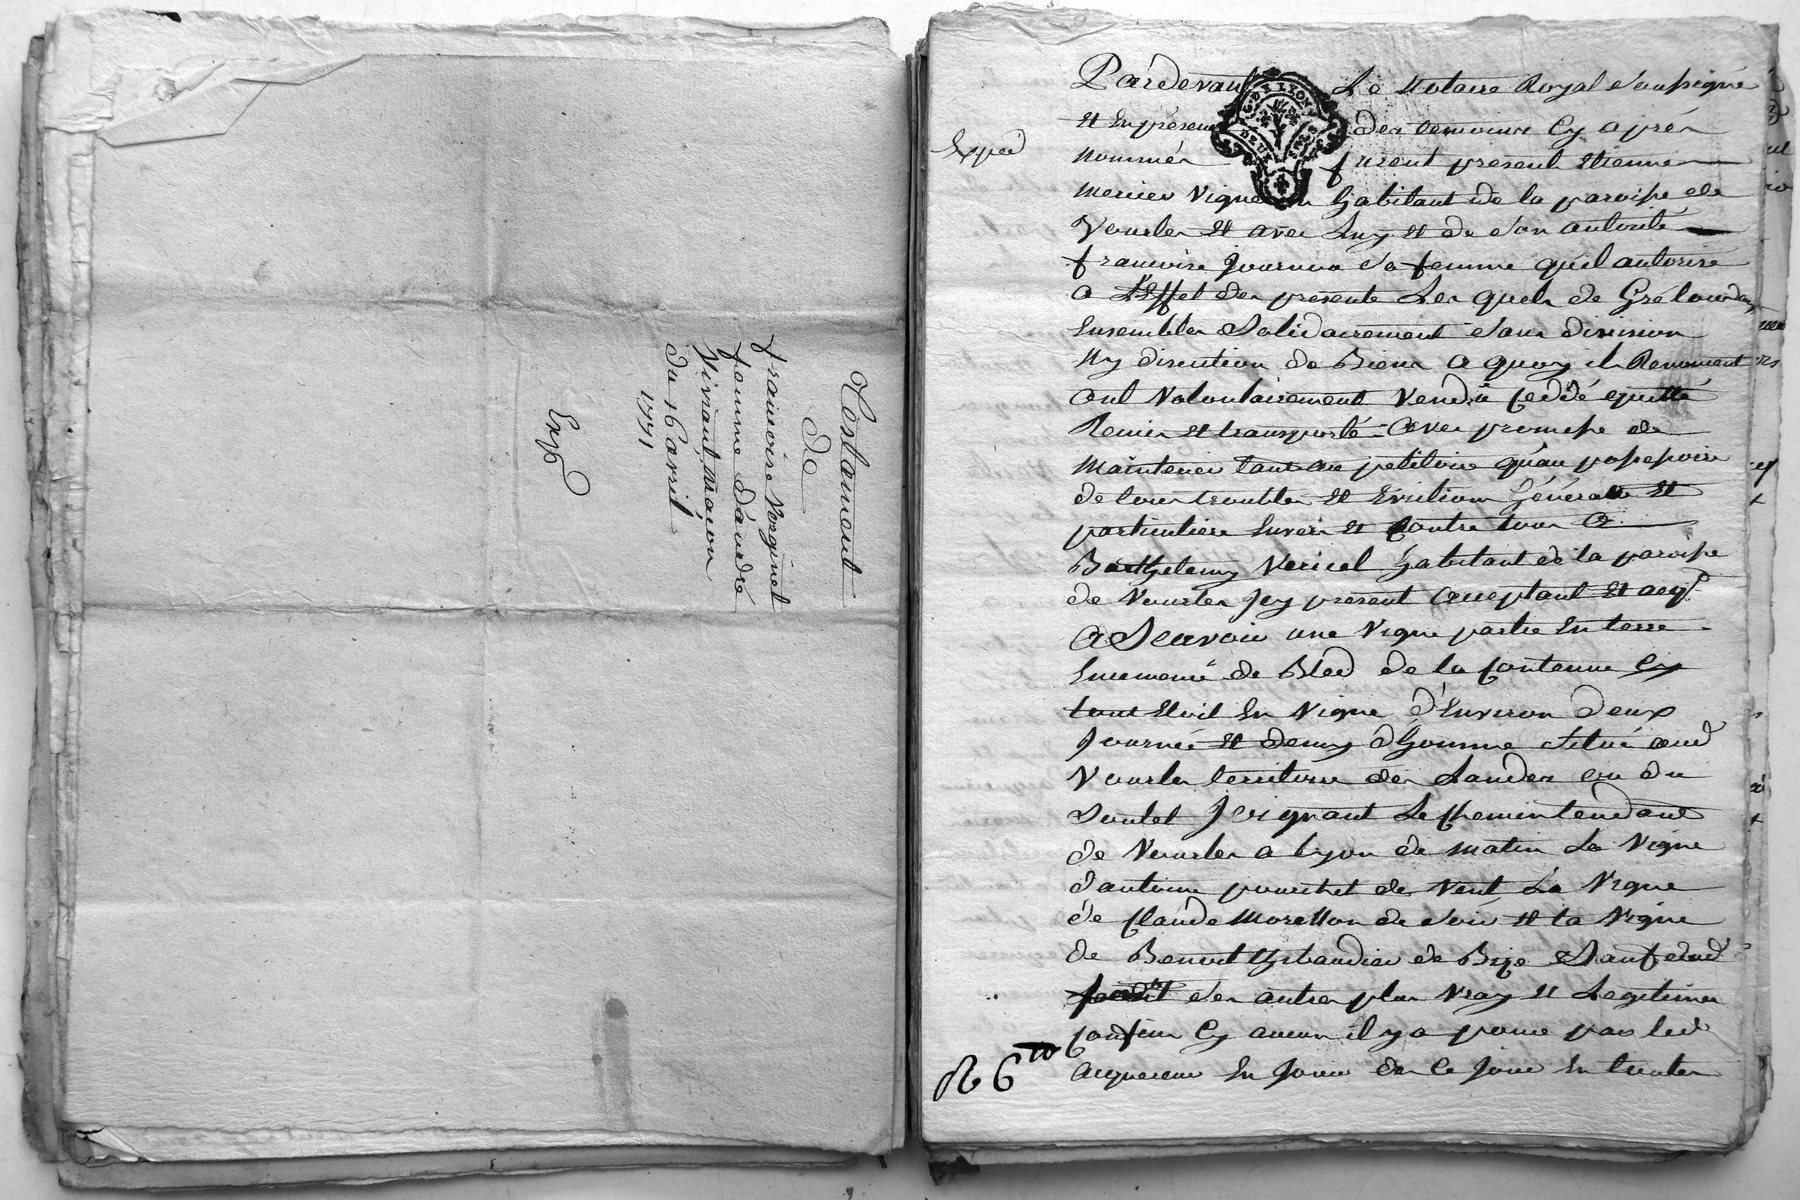 Testament
de
francoise Verguet
femme d'andré
Vivrant, macon
du 16 avril
1771
Exp
Expéd
Pardevant Le Notaire Royal soussigné
Et En présence des temoins Cy aprés
Nommés furent present Etienne
Mercier Vigneron habitant de la paroisse de
Vourles Et avec Luy Et de son autorité
francoise Journoux sa femme quil autorise
a L'Effet des presente Les quels de Gré
Ensembles Solidairement sans division
Ny discution de Biens a quoy ils Renoncent
ont Volontairement Vendu ceddé quitté
Remis Et transporté avec promesse de
Maintenir tant au petitoire qu'au possessoire
de tous troubles Et Evictions Générale Et
particuliere Envers Et Contre tous a
Barthelemy Vericel habitant de la paroisse
de Vourles Jcy present acceptant Et acqt
a Scavoir une Vigne partie En terre
Ensemencé de Bled de la Contenue Cy
tout Etoit En Vigne d'Environ deux
Journée Et demy d'homme situé aud
Vourles territoire des Landes ou du
Joignant Le Chemin tendant
de Vourles a Lyon de matin La Vigne
d'antoine ponchet de Vent La Vigne
de Claude Morellon de soir Et La Vigne
de Benoit de Bize Sauf dud
fond ses autres plus Vray Et Legitimes
Confins Cy aucun il y a pour par led
acquereur En Jouir des Ce Jour En toutes
DE LYON
DEUX